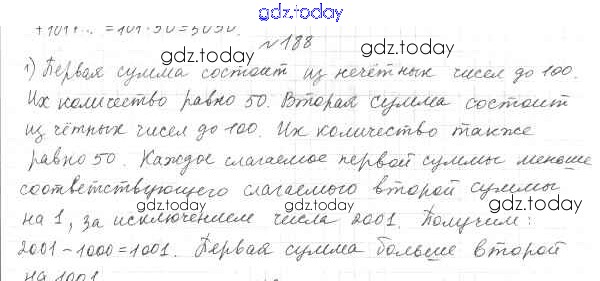 gdz.today
+101+... = 101·50=5050.
gdz.today №188 gdz.today
1) Первая сумма состоит из нечётных чисел до 100.
Их количество равно 50. Вторая сумма состоит
gdz.today gdz.today
из чётных чисел до 100. Их количество также
равно 50. Каждое слагаемое первой суммы меньше
соответствующего слагаемого второй суммы
gdz.today gdz.today
на 1, за исключением числа 2001. Получим:
2001-1000=1001. Первая сумма больше второй
на 1001